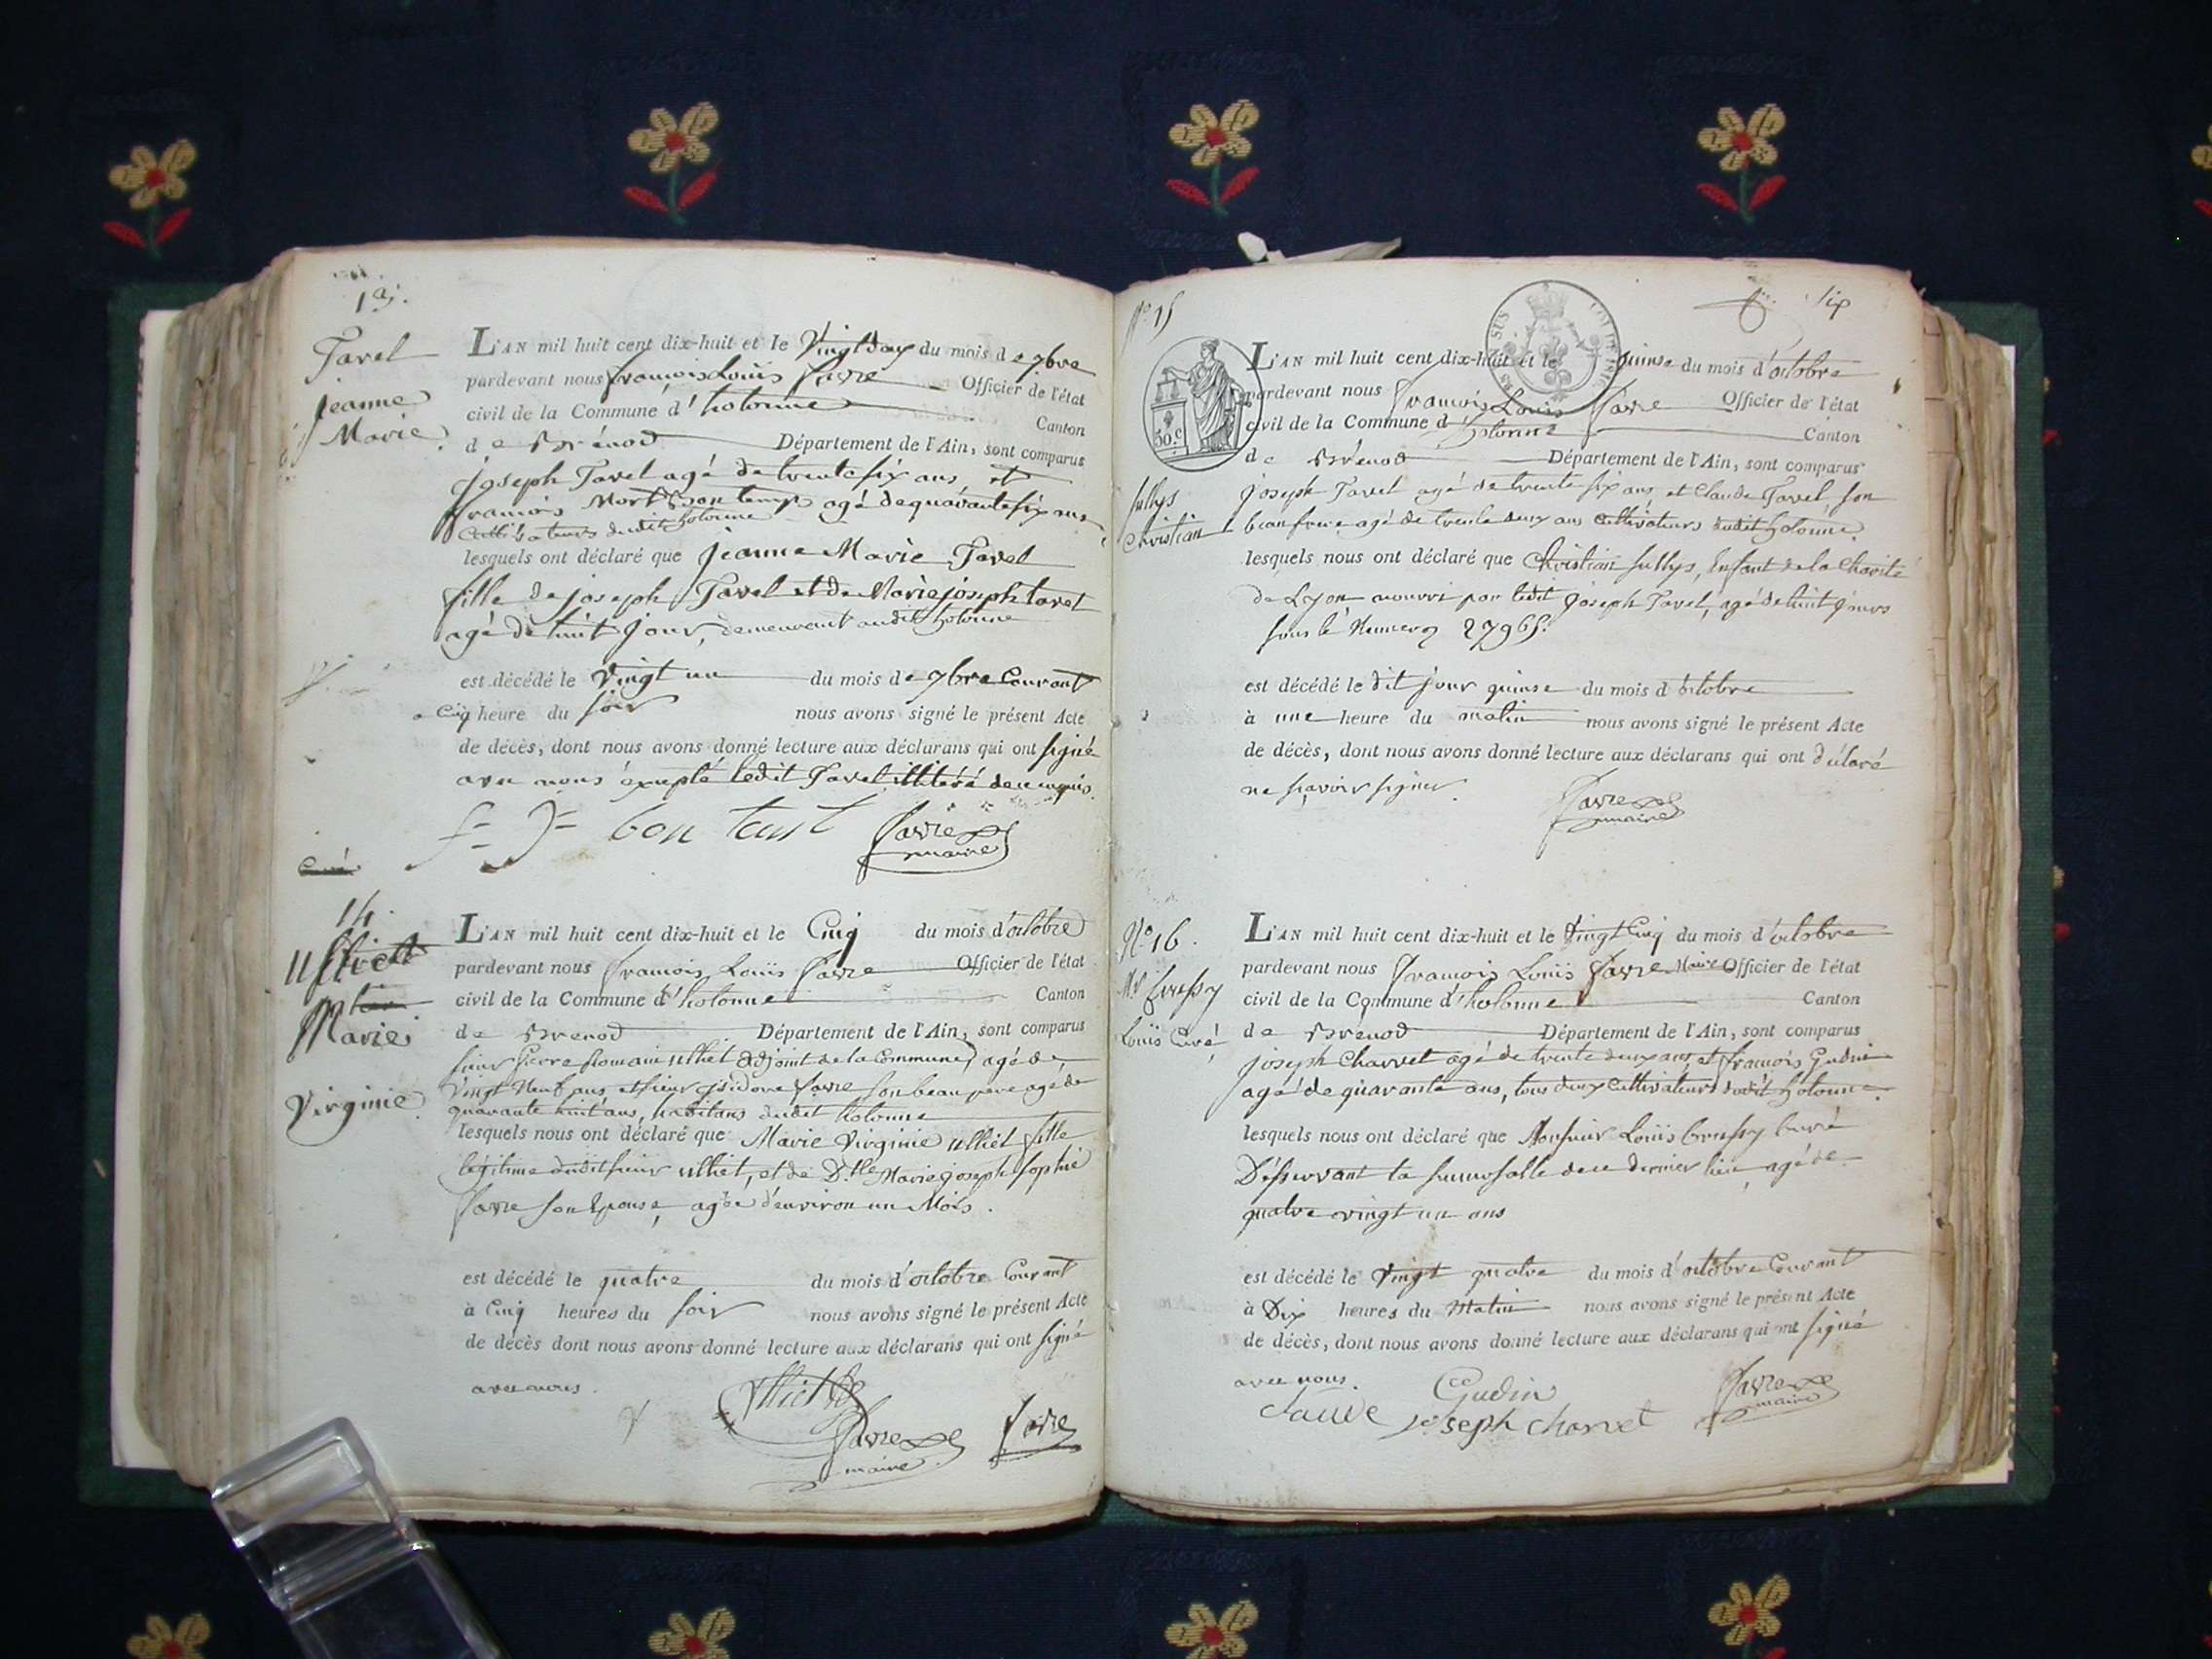 13.
Tavel
jeanne
Marie
L'AN mil huit cent dix-huit et le Vingt deux du mois de 7bre
pardevant nous francois Louis favre Officier de l'état
civil de la Commune d'hotonne Canton
de Brénod Département de l'Ain, sont comparus
joseph Tavel agé de trente six ans et
francois agé de quarante six ans
Cultivateurs dudit hotonne
lesquels ont déclaré que jeanne Marie Tavel
fille de joseph Tavel et de Marie joseph tavel
agé de huit jour, demeurant audit hotonne
est décédé le Vingt un du mois de 7bre Courant
a Cinq heure du soir nous avons signé le présent Acte
de décès, dont nous avons donné lecture aux déclarans qui ont signé
avec nous excepté ledit Tavel illitéré de ce enquis.
bon tant favre
maire
Curé
14.
Ulliet
Marie
Virginie
L'AN mil huit cent dix-huit et le Cinq du mois d'octobre
pardevant nous francois Louis favre Officier de l'état
civil de la Commune d'hotonne Canton
de Brenod Département de l'Ain, sont comparus
sieur pierre Romain ulliet adjoint de la Commune, agé de
Vingt Neuf ans et sieur jsidore favre son beau pere agé de
quarante huit ans, habitans dudit hotonne
lesquels nous ont déclaré que Marie Virginie ulliet fille
légitime dudit sieur ulliet, et de D.lle Marie joseph sophie
favre son Epouse, agée d'environ un Mois.
est décédé le quatre du mois d'octobre Courant
à Cinq heures du soir nous avons signé le présent Acte
de décès dont nous avons donné lecture aux déclarans qui ont signé
avec nous.
Ulliet
favre favre
maire
six
N.o 15
30.c
L'AN mil huit cent dix-huit et le quinse du mois d'octobre
pardevant nous francois Louis favre Officier de l'état
civil de la Commune d'hotonne Canton
de Brénod Département de l'Ain, sont comparus
Sullys
Christian
joseph Tavel agé de trente six ans, et Claude Tavel, son
beau frere agé de trente deux ans Cultivateurs dudit hotonne.
lesquels nous ont déclaré que Christian Sullys, Enfant de la Charité
de Lyon nourri par ledit joseph Tavel, agé de huit jours
sous le Numero 27965.
est décédé le dit jour quinse du mois d'octobre
à une heure du matin nous avons signé le présent Acte
de décès, dont nous avons donné lecture aux déclarans qui ont déclaré
ne sçavoir signer.
favre
maire
N.o 16.
Louis Curé
L'AN mil huit cent dix-huit et le Vingt Cinq du mois d'octobre
pardevant nous francois Louis favre Maire Officier de l'état
civil de la Commune d'hotonne Canton
de Brenod Département de l'Ain, sont comparus
joseph Charvet agé de trente deux ans, et francois Gudin
agé de quarante ans, tous deux Cultivateurs dudit hotonne.
lesquels nous ont déclaré que Monsieur Louis Curé
Desservant la succursalle de ce dernier lieu, agé de
quatre vingt un ans
est décédé le Vingt quatre du mois d'octobre Courant
à Dix heures du Matin nous avons signé le présent Acte
de décès, dont nous avons donné lecture aux déclarans qui ont signé
avec nous. Gudin favre
joseph charvet maire